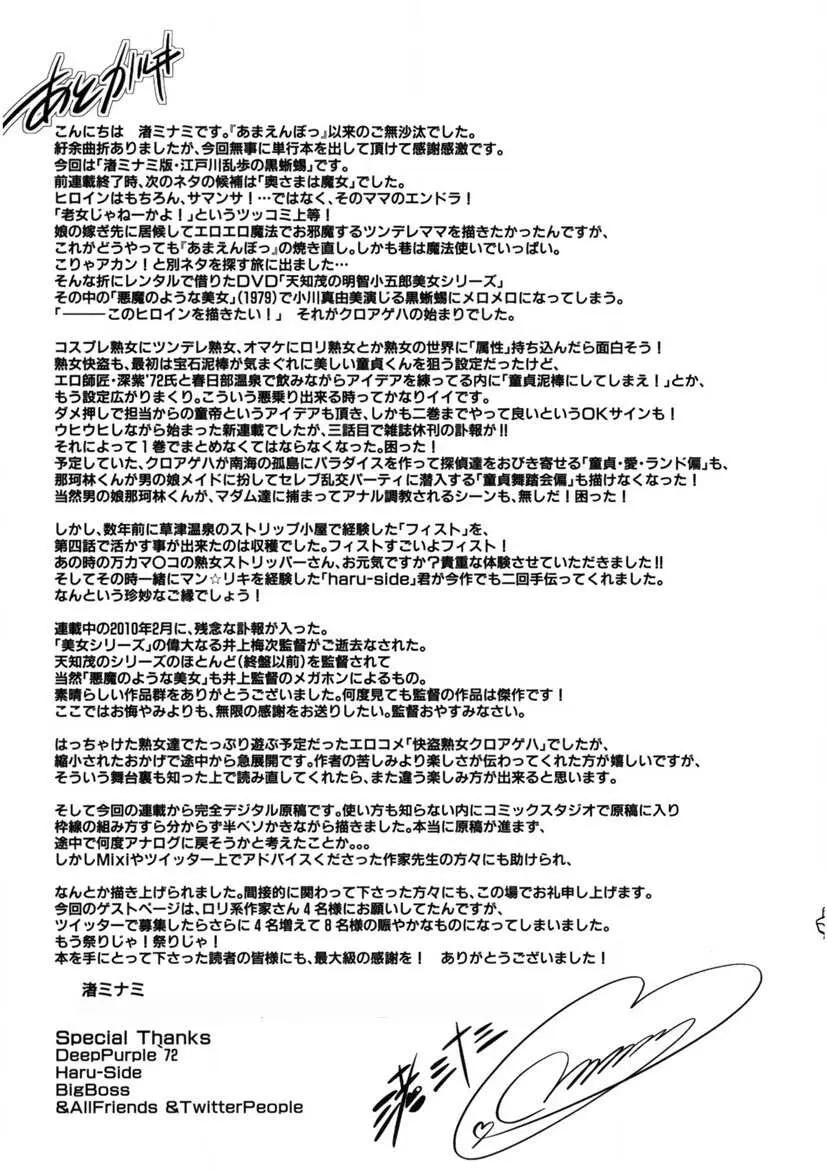 あとがき
こんにちは　渚ミナミです。『あまえんぼっ』以来のご無沙汰でした。
紆余曲折ありましたが、今回無事に単行本を出して頂けて感謝感激です。
今回は「渚ミナミ版・江戸川乱歩の黒蜥蜴」です。
前連載終了時、次のネタの候補は「奥さまは魔女」でした。
ヒロインはもちろん、サマンサ！…ではなく、そのママのエンドラ！
「老女じゃねーかよ！」というツッコミ上等！
娘の嫁ぎ先に居候してエロエロ魔法でお邪魔するツンデレママを描きたかったんですが、
これがどうやっても『あまえんぼっ』の焼き直し。しかも巷は魔法使いでいっぱい。
こりゃアカン！と別ネタを探す旅に出ました…
そんな折にレンタルで借りたDVD「天知茂の明智小五郎美女シリーズ」
その中の「悪魔のような美女」(1979)で小川真由美演じる黒蜥蜴にメロメロになってしまう。
「―――このヒロインを描きたい！」　それがクロアゲハの始まりでした。
コスプレ熟女にツンデレ熟女、オマケにロリ熟女とか熟女の世界に「属性」持ち込んだら面白そう！
熟女快盗も、最初は宝石泥棒が気まぐれに美しい童貞くんを狙う設定だったけど、
エロ師匠・深紫'72氏と春日部温泉で飲みながらアイデアを練ってる内に「童貞泥棒にしてしまえ！」とか、
もう設定広がりまくり。こういう悪乗り出来る時ってかなりイイです。
ダメ押しで担当からの童帝というアイデアも頂き、しかも二巻までやって良いというOKサインも！
ウヒウヒしながら始まった新連載でしたが、三話目で雑誌休刊の訃報が!!
それによって１巻でまとめなくてはならなくなった。困った！
予定していた、クロアゲハが南海の孤島にパラダイスを作って探偵達をおびき寄せる「童貞・愛・ランド偏」も、
那珂林くんが男の娘メイドに扮してセレブ乱交パーティに潜入する「童貞舞踏会偏」も描けなくなった！
当然男の娘那珂林くんが、マダム達に捕まってアナル調教されるシーンも、無しだ！困った！
しかし、数年前に草津温泉のストリップ小屋で経験した「フィスト」を、
第四話で活かす事が出来たのは収穫でした。フィストすごいよフィスト！
あの時の万カマ〇コの熟女ストリッパーさん、お元気ですか？貴重な体験させていただきました!!
そしてその時一緒にマン☆リキを経験した「haru-side」君が今作でも二回手伝ってくれました。
なんという珍妙なご縁でしょう！
連載中の2010年2月に、残念な訃報が入った。
「美女シリーズ」の偉大なる井上梅次監督がご逝去なされた。
天知茂のシリーズのほとんど(終盤以前)を監督されて
当然「悪魔のような美女」も井上監督のメガホンによるもの。
素晴らしい作品群をありがとうございました。何度見ても監督の作品は傑作です！
ここではお悔やみよりも、無限の感謝をお送りしたい。監督おやすみなさい。
はっちゃけた熟女達でたっぷり遊ぶ予定だったエロコメ「快盗熟女クロアゲハ」でしたが、
縮小されたおかげで途中から急展開です。作者の苦しみより楽しさが伝わってくれた方が嬉しいですが、
そういう舞台裏も知った上で読み直してくれたら、また違う楽しみ方が出来ると思います。
そして今回の連載から完全デジタル原稿です。使い方も知らない内にコミックスタジオで原稿に入り
枠線の組み方すら分からず半ベソかきながら描きました。本当に原稿が進まず、
途中で何度アナログに戻そうかと考えたことか。。。
しかしMixiやツイッター上でアドバイスくださった作家先生の方々にも助けられ、
なんとか描き上げられました。間接的に関わって下さった方々にも、この場でお礼申し上げます。
今回のゲストページは、ロリ系作家さん４名様にお願いしてたんですが、
ツイッターで募集したらさらに４名増えて８名様の賑やかなものになってしまいました。
もう祭りじゃ！祭りじゃ！
本を手にとって下さった読者の皆様にも、最大級の感謝を！　ありがとうございました！
渚ミナミ
Special Thanks
DeepPurple '72
Haru-Side
BigBoss
&AllFriends &TwitterPeople
渚ミナミ